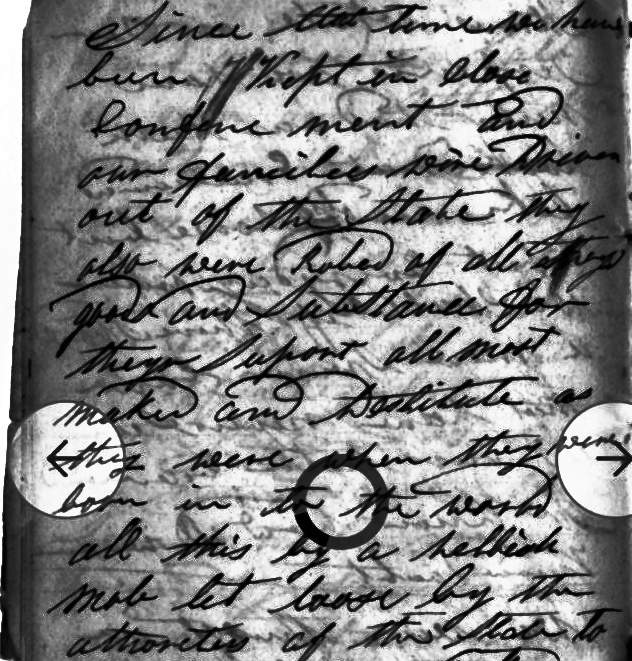 Since that time we have
bun Kept in Close
Confine ment and
our families wore Driven
out of the State they
also were Robed of all
goods and Substance for
Suport all most
naked and Destitute as
they were when they were
born in to the world
all this by a hellish
mob let loose by the
athroreties of the State to